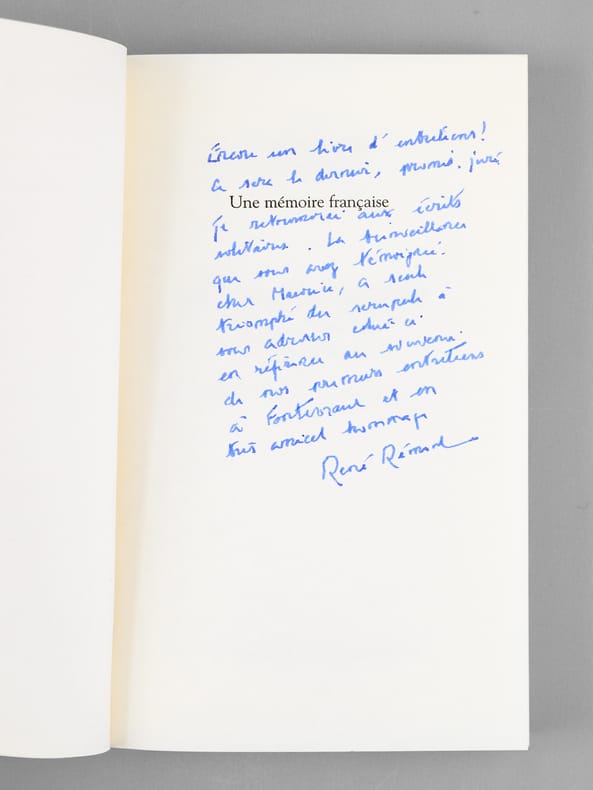 Encore un livre d'entretiens!
Ce sera le dernier, promis. juré
Une mémoire française
Je retournerai aux écrits
solitaires. La bienveillance
que vous avez témoignée.
cher Maurice, a seule
triomphé du scrupule à
vous adresser celui-ci
en référence au souvenir
de nos premiers entretiens
à Fontevraud et en
très amical hommage
René Rémond